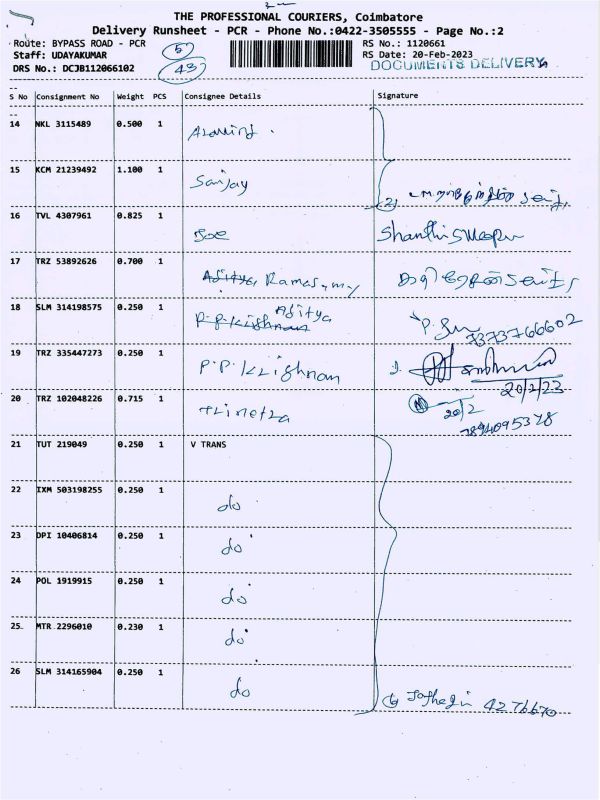 THE PROFESSIONAL COURIERS, Coimbatore
Delivery Runsheet - PCR - Phone No.:0422-3505555 - Page No.:2
Route: BYPASS ROAD - PCR
RS No.: 1120661
Staff: UDAYAKUMAR
RS Date: 20-Feb-2023
DRS No.: DCJB112066102
DOCUMENTS DELIVERY
S No Consignment No Weight PCS Consignee Details Signature
14 NKL 3115489 0.500 1
15 KCM 21239492 1.100 1 Sanjay
(2)
16 TVL 4307961 0.825 1 Joe
17 TRZ 53892626 0.700 1 Aditya,
18 SLM 314198575 0.250 1 P.P.Krishnan Aditya
7373766602
19 TRZ 335447273 0.250 1 P.P.Krishnan
20/2/23
20 TRZ 102048226 0.715 1 Trinetra
20/2
21 TUT 219049 0.250 1 V TRANS
22 IXM 503198255 0.250 1 do
23 DPI 10406814 0.250 1 do
24 POL 1919915 0.250 1 do
25 MTR 2296010 0.230 1 do
26 SLM 314165904 0.250 1 do